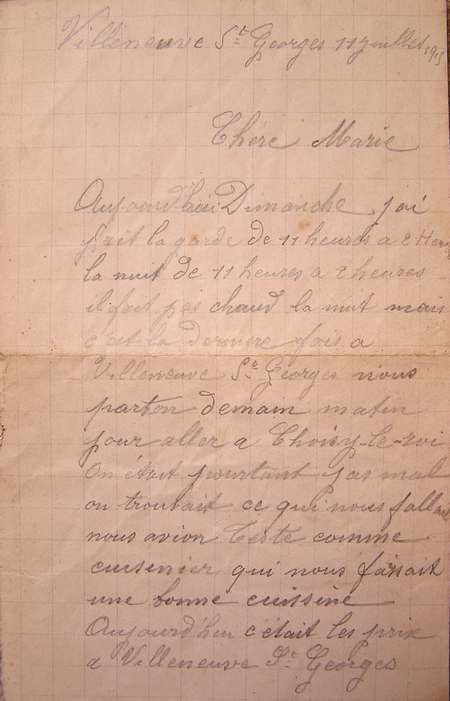 Villeneuve St Georges 11 juillet 1915
Chère Marie
Aujourd'hui Dimanche j'ai
fait la garde de 11 heures a 2 Heur
la nuit de 11 heures a 2 heures
il fait pas chaud la nuit mais
c'est la dernière fois a
Villeneuve St Georges nous
parton demain matin
pour aller a Choisy-le-roi
On était pourtant pas mal
on trouvait ce qui nous fallait
nous avion Teste comme
cuisenier qui nous faissait
une bonne cuissine
Aujourd'hui c'était les prix
a Villeneuve St Georges